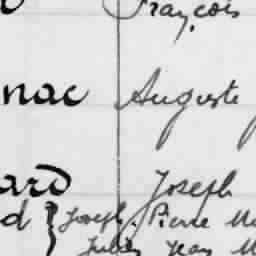 François
nac Auguste
ard Joseph
d { Joseph, Pierre
Jean